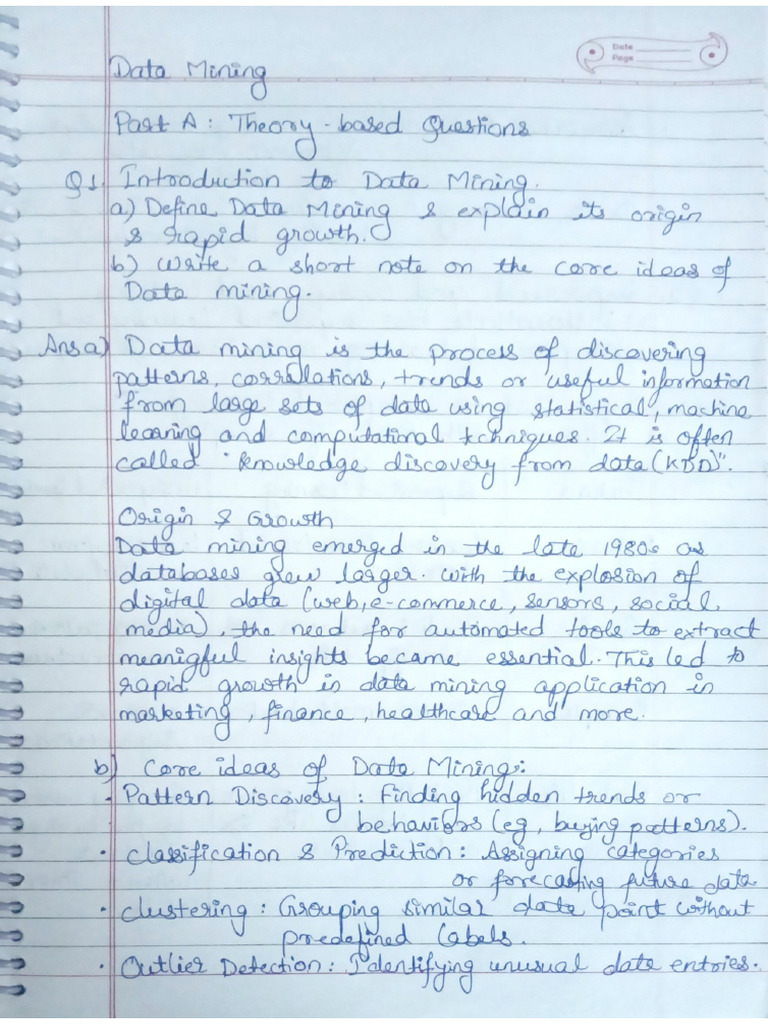 Date
Page
Data Mining
Part A : Theory-based Questions
Q1. Introduction to Data Mining.
a) Define Data Mining & explain its origin
& rapid growth.
b) Write a short note on the core ideas of
Data mining.
Ans a) Data mining is the process of discovering
patterns, correlations, trends or useful information
from large sets of data using statistical, machine
learning and computational techniques. It is often
called "knowledge discovery from data (KDD)".
Origin & Growth
Data mining emerged in the late 1980s as
databases grew larger. with the explosion of
digital data (web, e-commerce, sensors, social
media), the need for automated tools to extract
meanigful insights became essential. This led to
rapid growth in data mining application in
marketing, finance, healthcare and more.
b) Core ideas of Data Mining:
• Pattern Discovery : Finding hidden trends or
behaviors (eg, buying patterns).
• Classification & Prediction : Assigning categories
or forecasting future data.
• Clustering : Grouping similar data point without
predefined labels.
• Outlier Detection : Identifying unusual data entries.